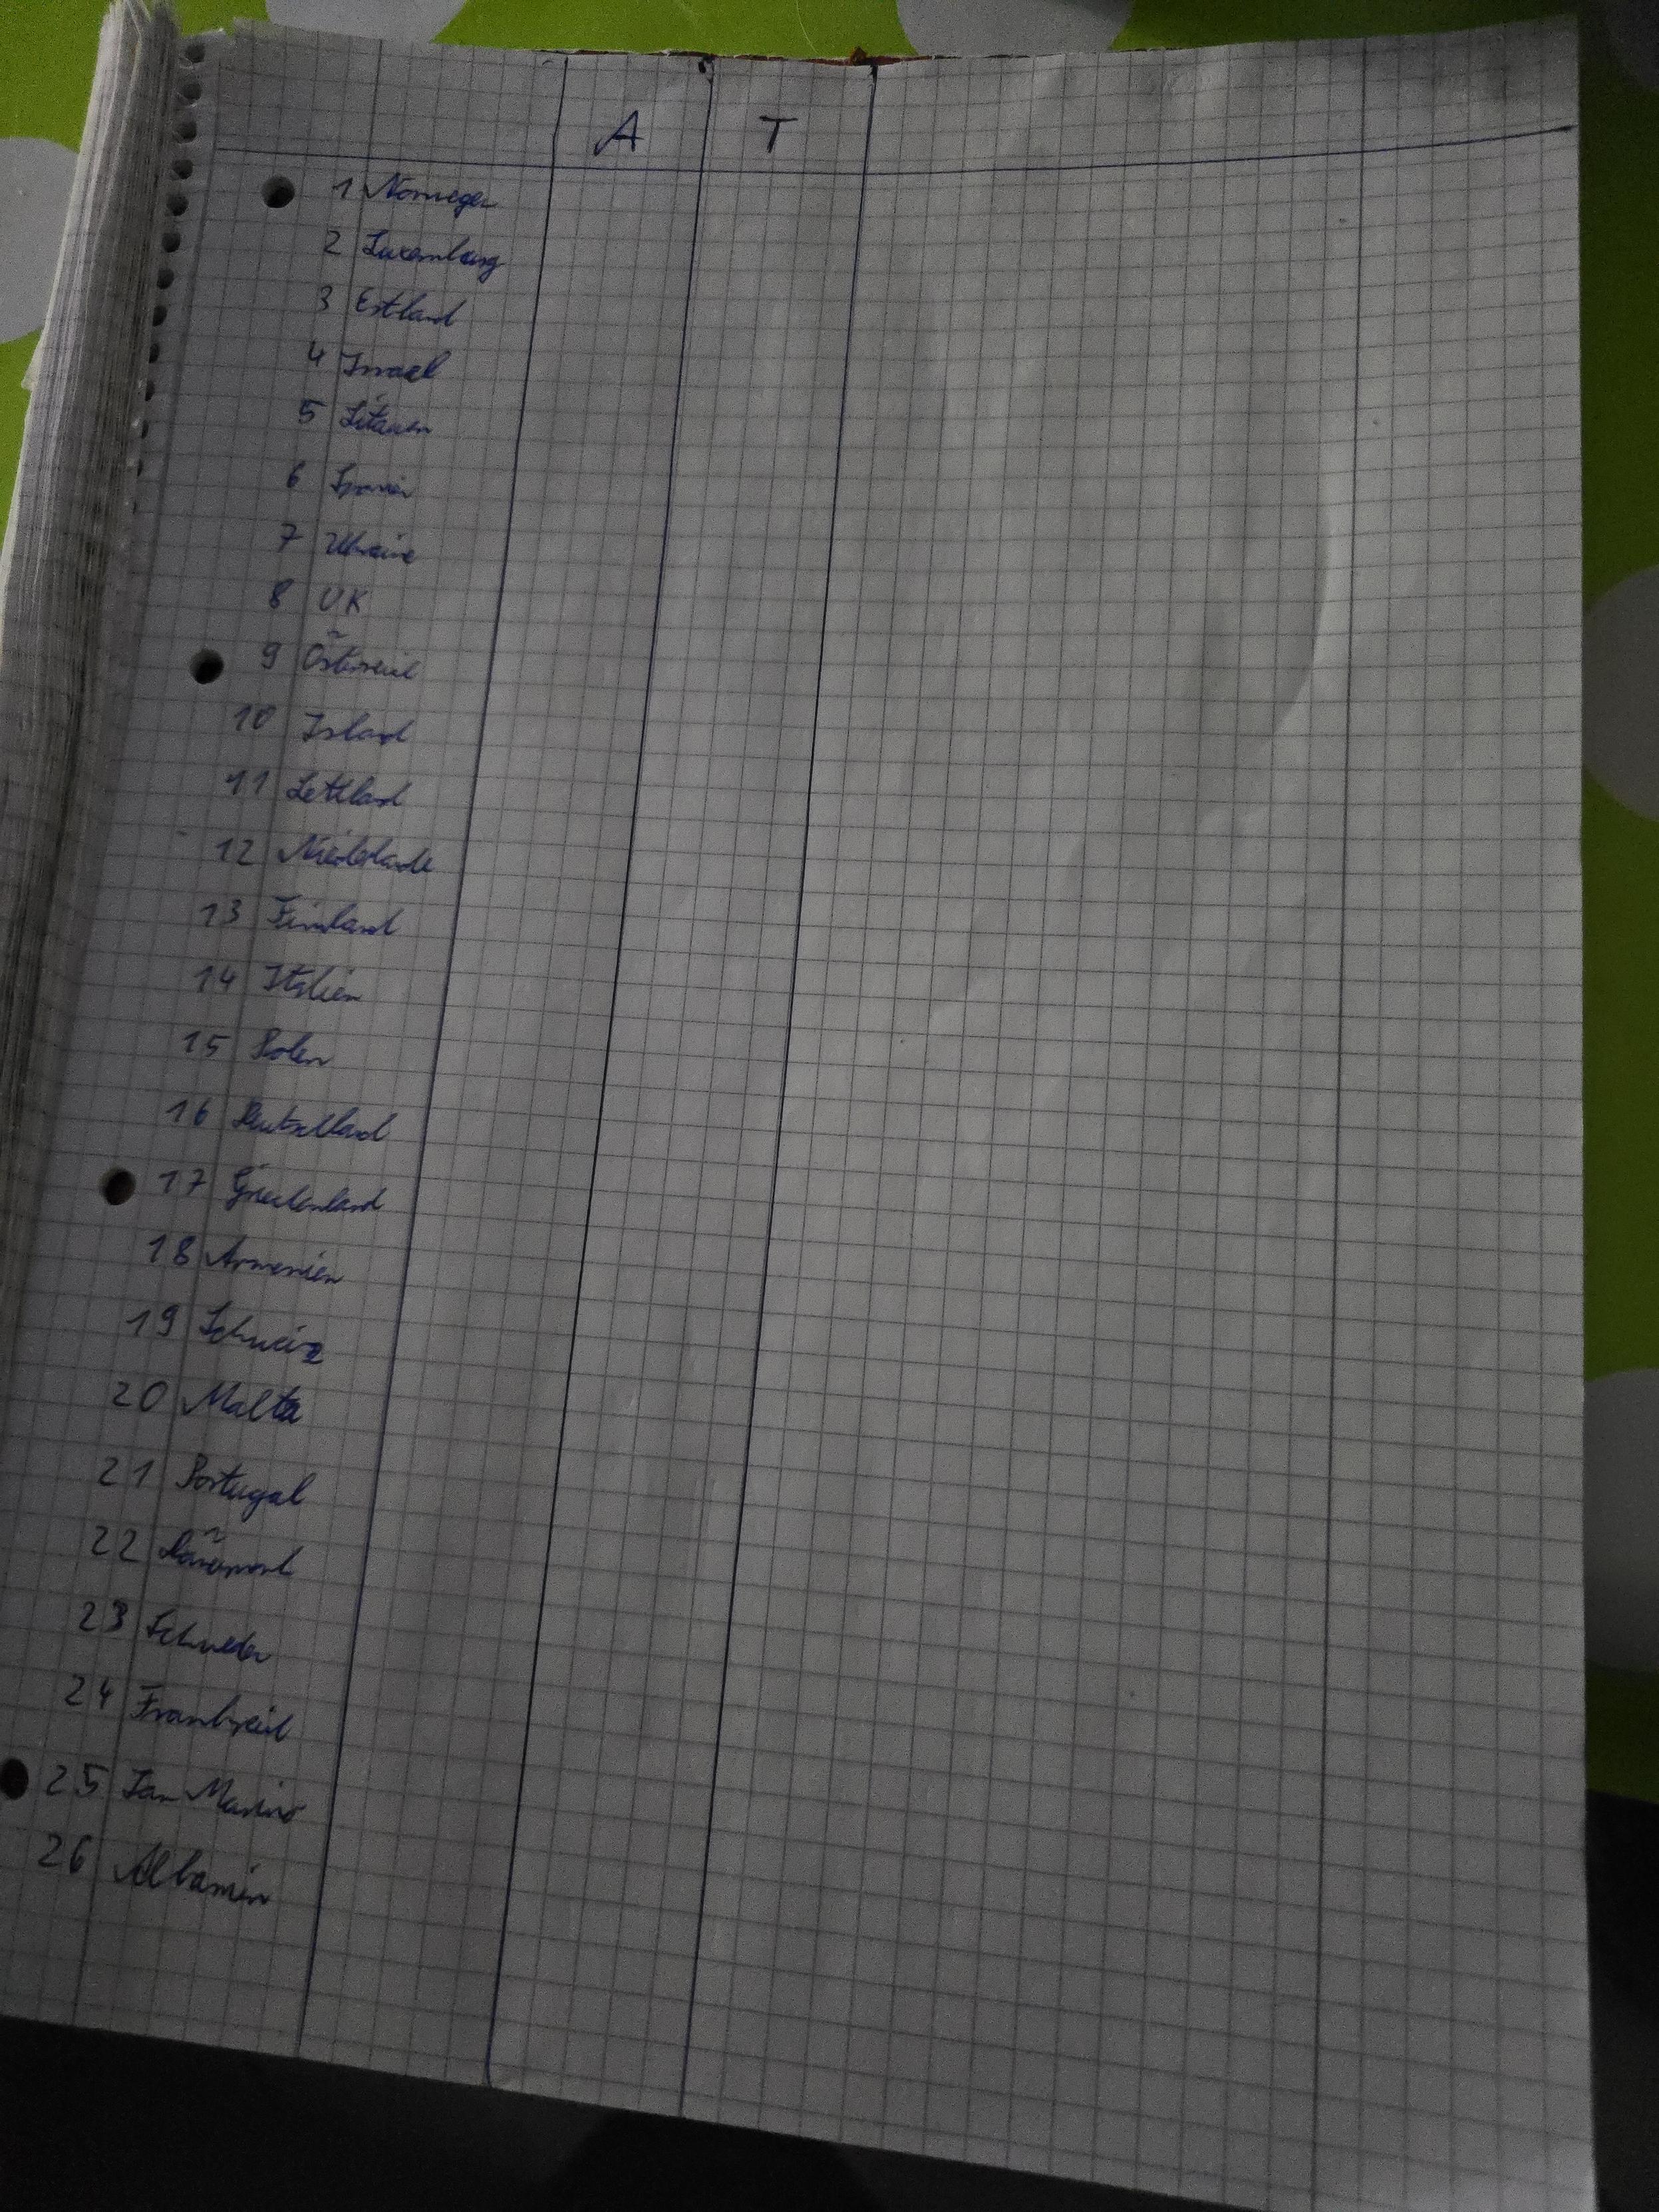 A T
1 Norwegen
2 Luxemburg
3 Estland
4 Israel
5 Litauen
6 Spanien
7 Ukraine
8 UK
9 Österreich
10 Island
11 Lettland
12 Niederlande
13 Finnland
14 Italien
15 Polen
16 Deutschland
17 Griechenland
18 Armenien
19 Schweiz
20 Malta
21 Portugal
22 Dänemark
23 Schweden
24 Frankreich
25 San Marino
26 Albanien